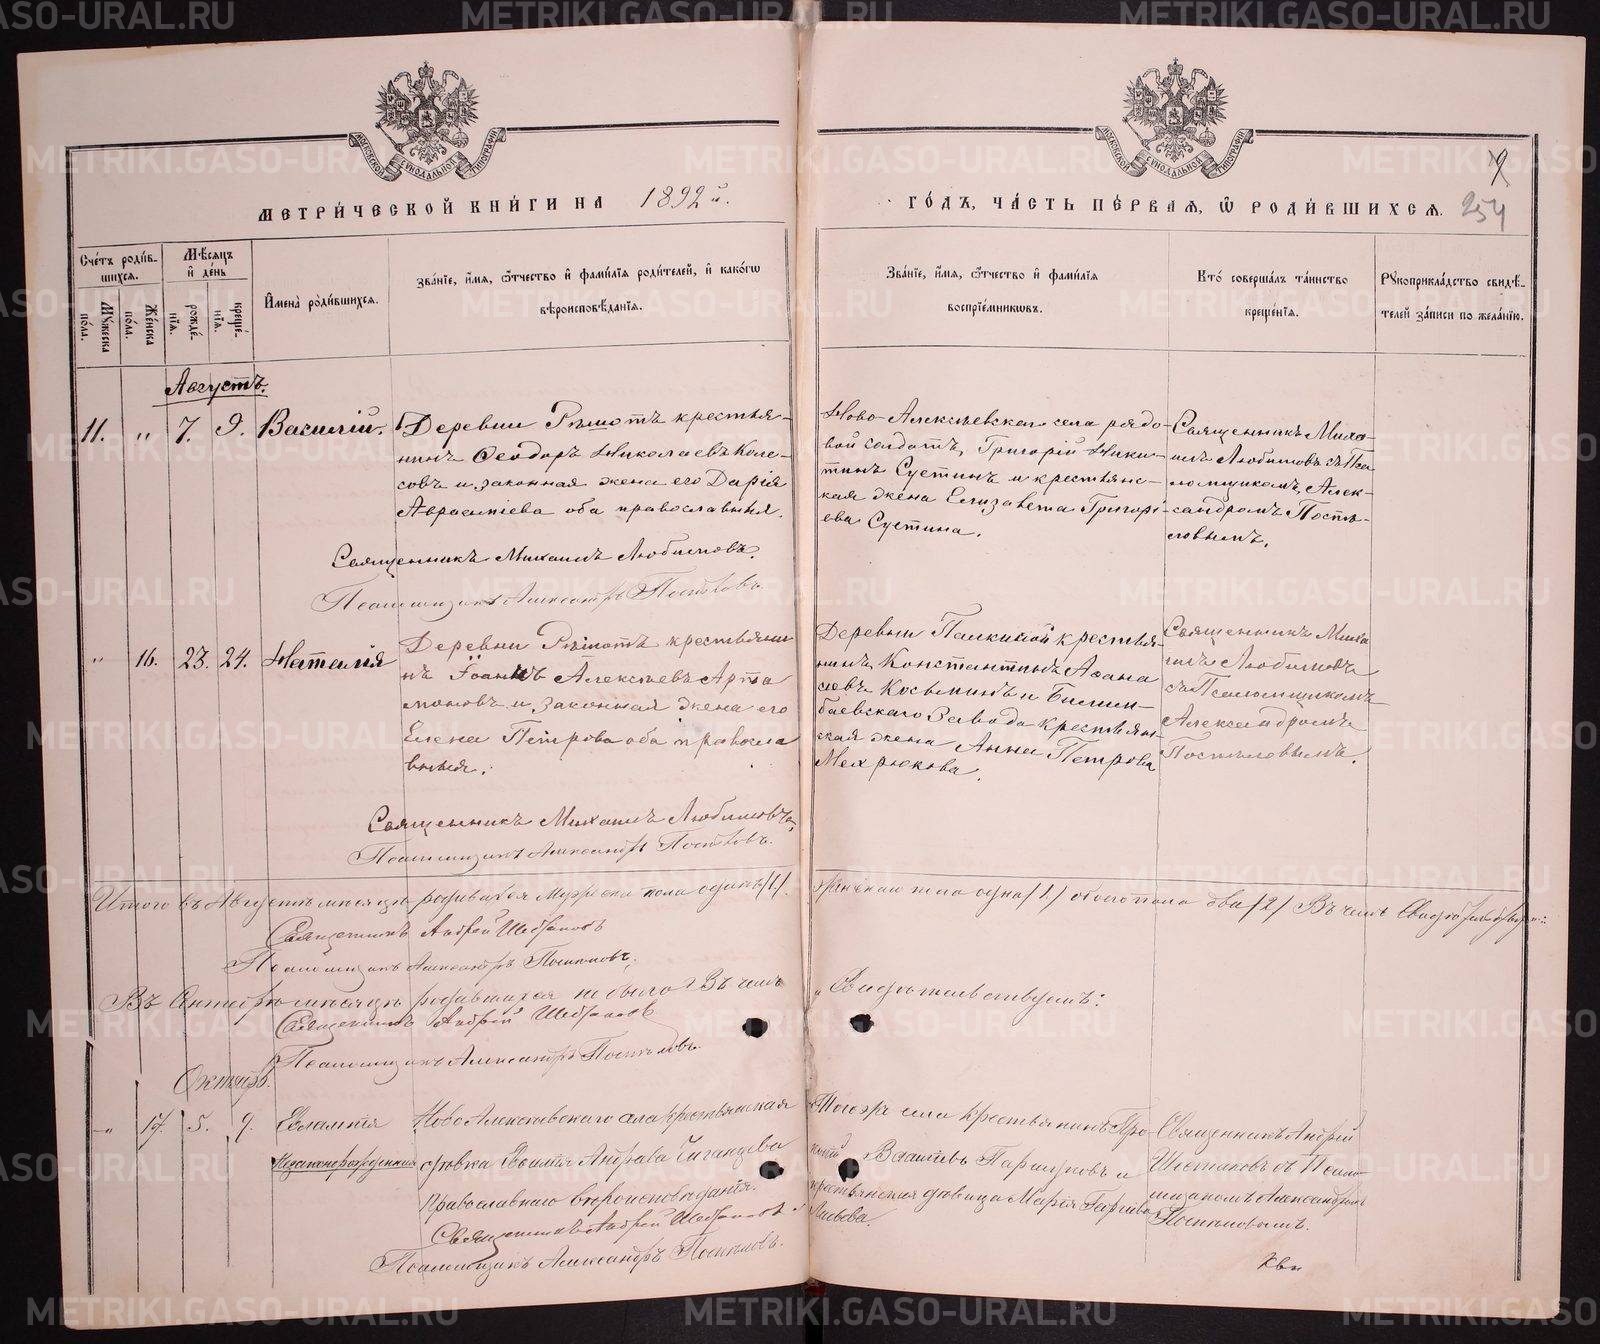 МЕТРИ́ЧЕСКОЙ КНИ́ГИ НА 1892 й.
ГО́ДЪ, ЧА́СТЬ ПЕ́РВАЯ, Ѡ РОДИ́ВШИХСЯ. 254
Сче́тъ роди́в-
шихся.
Му́жеска по́ла.
Же́нска по́ла.
Мѣ́сяцъ и де́нь
рожде́-
нїя.
креще́-
нїя.
Имена̀ роди́вшихся.
Зва́нїе, и́мя, ѻ́тчество и фами́лїя роди́телей, и како́гѡ
вѣроисповѣ́данїя.
Зва́нїе, и́мя, ѻ́тчество и фами́лїя
воспрїе́мниковъ.
Кто̀ соверша́лъ та́инство
креще́нїя.
Рꙋкоприкла́дство свидѣ́-
телей за́писи по жела́нїю.
Августъ.
11. " 7. 9. Василій.
Деревни Рѣшотъ крестья-
нинъ Ѳеодоръ Николаевъ Коле-
совъ и законная жена его Дарія
оба православныя.
Священникъ Михаилъ Любимовъ.
Псаломщикъ Александръ Поспѣловъ.
Ново-Алексѣевскаго села рядо-
вой солдатъ, Григорій Ники-
тинъ Сустинъ и крестьянс-
кая жена Елизавета Григорі-
ева Сустина.
Священникъ Миха-
илъ Любимовъ съ Пса-
ломщикомъ, Алек-
сандромъ Поспѣ-
ловымъ.
" 16. 23. 24. Наталія
Деревни Рѣшотъ крестьянин
ъ Іоаннъ Алексѣевъ Арта
моновъ и законная жена его
Елена Петрова оба правосла
вныя.
Священникъ Михаилъ Любимовъ.
Псаломщикъ Александръ Поспѣловъ.
Деревни Палкиной крестья-
нинъ, Константинъ Аѳана
сьевъ Косьминъ и Билим-
баевскаго Завода крестьян-
ская жена Анна Петрова
Мехрюкова.
Священникъ Миха
илъ Любимовъ
съ Псаломщикомъ
Александромъ
Поспѣловымъ.
Итого въ Августѣ мѣсяцѣ родившихся Мужеска пола одинъ /1/. женскаго пола одна /1/ обоего пола два /2/ Въ чемъ
Священникъ Андрей
Псаломщикъ Александръ Поспѣловъ.
Въ Сентябрѣ мѣсяцѣ родившихся не было. Въ чемъ
Свидѣтельствуемъ:
Священникъ Андрей
Псаломщикъ Александръ Поспѣловъ.
Октябрь.
" 17. 5. 9. Евлампія
Незаконнорожденная
Ново Алексѣевскаго села крестьянская
дѣвка
Православнаго вѣроисповѣданія.
Священникъ Андрей
Псаломщикъ Александръ Поспѣловъ.
Тогоже села крестьянинъ Про-
Василіевъ и
крестьянская дѣвица Марія
Священникъ Андрей
съ Псало-
мщикомъ Александромъ
Поспѣловымъ.